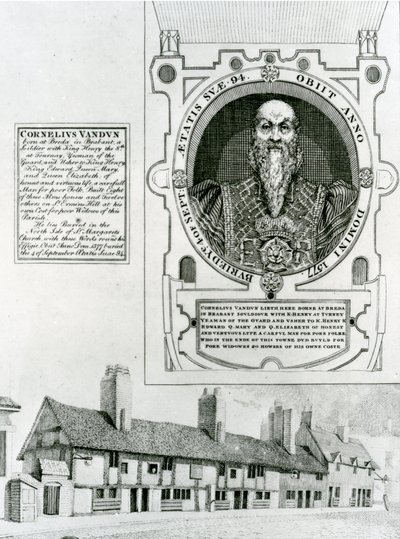 CORNELIUS VANDUN
born at Breda in Brabant, a
Soldier with King Henry the 8th
at Tournay, Yeoman of the
Guard, and Usher to King Henry,
King Edward, Queen Mary,
and Queen Elizabeth; of
honest and virtuous life, a carefull
Man for poor Folk, Built Eight
of these Alms houses and Twelve
others on St Ermins Hill at his
own Cost for poor Widows of this
Parish
He lies Buried in the
North Isle of St Margarets
Church with these Words round his
Effigie Obiit Anno Dom. 1577 buried
the 4 of September Ætatis Suae 94.
ÆTATIS SVÆ 94. OBIIT ANNO DOMINI 1577 BVRIED Y 4 OF SEPT
CORNELIVS VANDVN LIETH HERE BORNE AT BREDA
IN BRABANT SOVLDIOVR WITH K. HENRY AT TVRNEY
YEAMAN OF THE GVARD AND VSHER TO K. HENRY K
EDWARD Q. MARY AND Q. ELISABETH OF HONEST
AND VERTVOVS LYFE A CARFVL MAN FOR POORE FOLKE
WHO IN THE ENDE OF THIS TOWNE DYD BVYLD FOR
PORE WIDOWES 20 HOWSES OF HIS OWNE COSTE